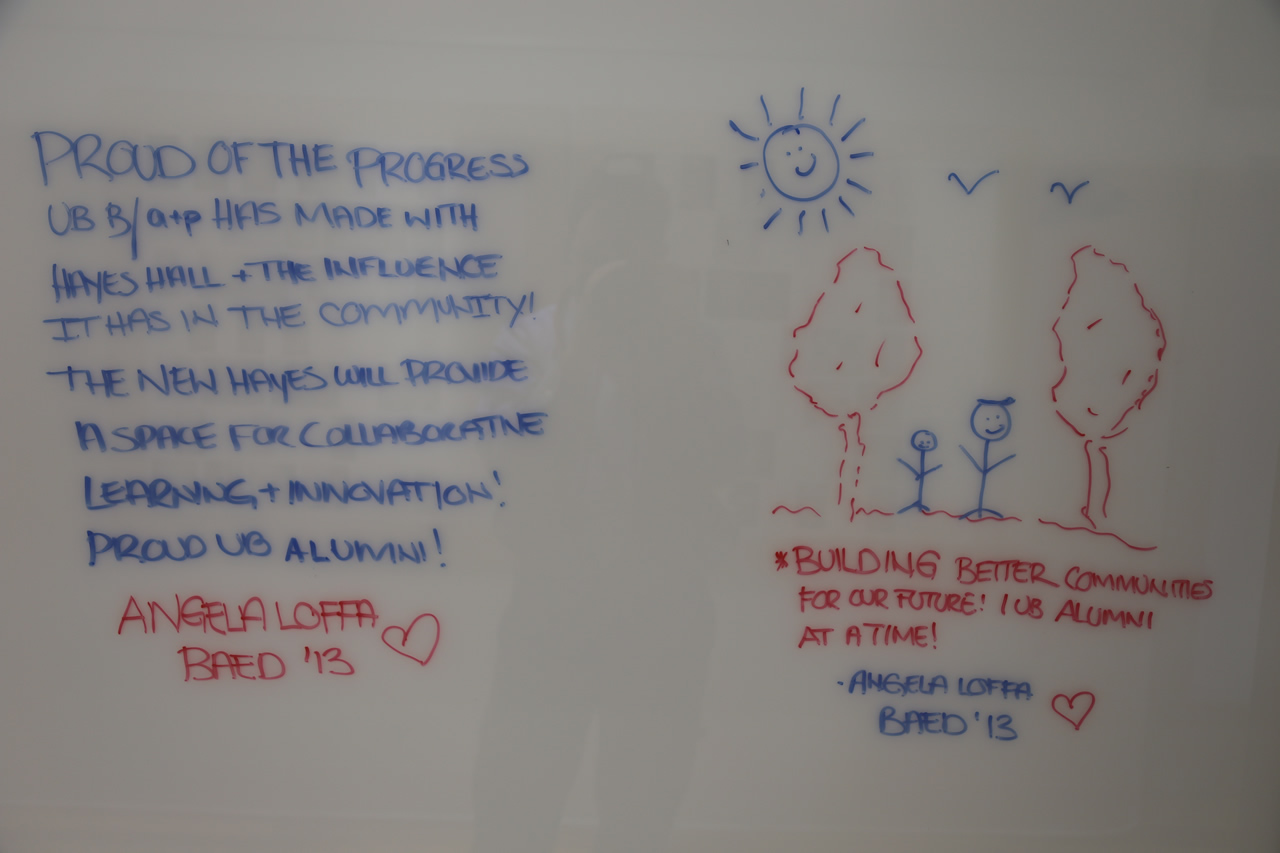 PROUD OF THE PROGRESS
UB B/a+p HAS MADE WITH
HAYES HALL + THE INFLUENCE
IT HAS IN THE COMMUNITY!
THE NEW HAYES WILL PROVIDE
A SPACE FOR COLLABORATIVE
LEARNING + INNOVATION!
PROUD UB ALUMNI!
ANGELA LOFFA
BAED '13
*BUILDING BETTER COMMUNITIES
FOR OUR FUTURE! 1 UB ALUMNI
AT A TIME!
-ANGELA LOFFA
BAED '13